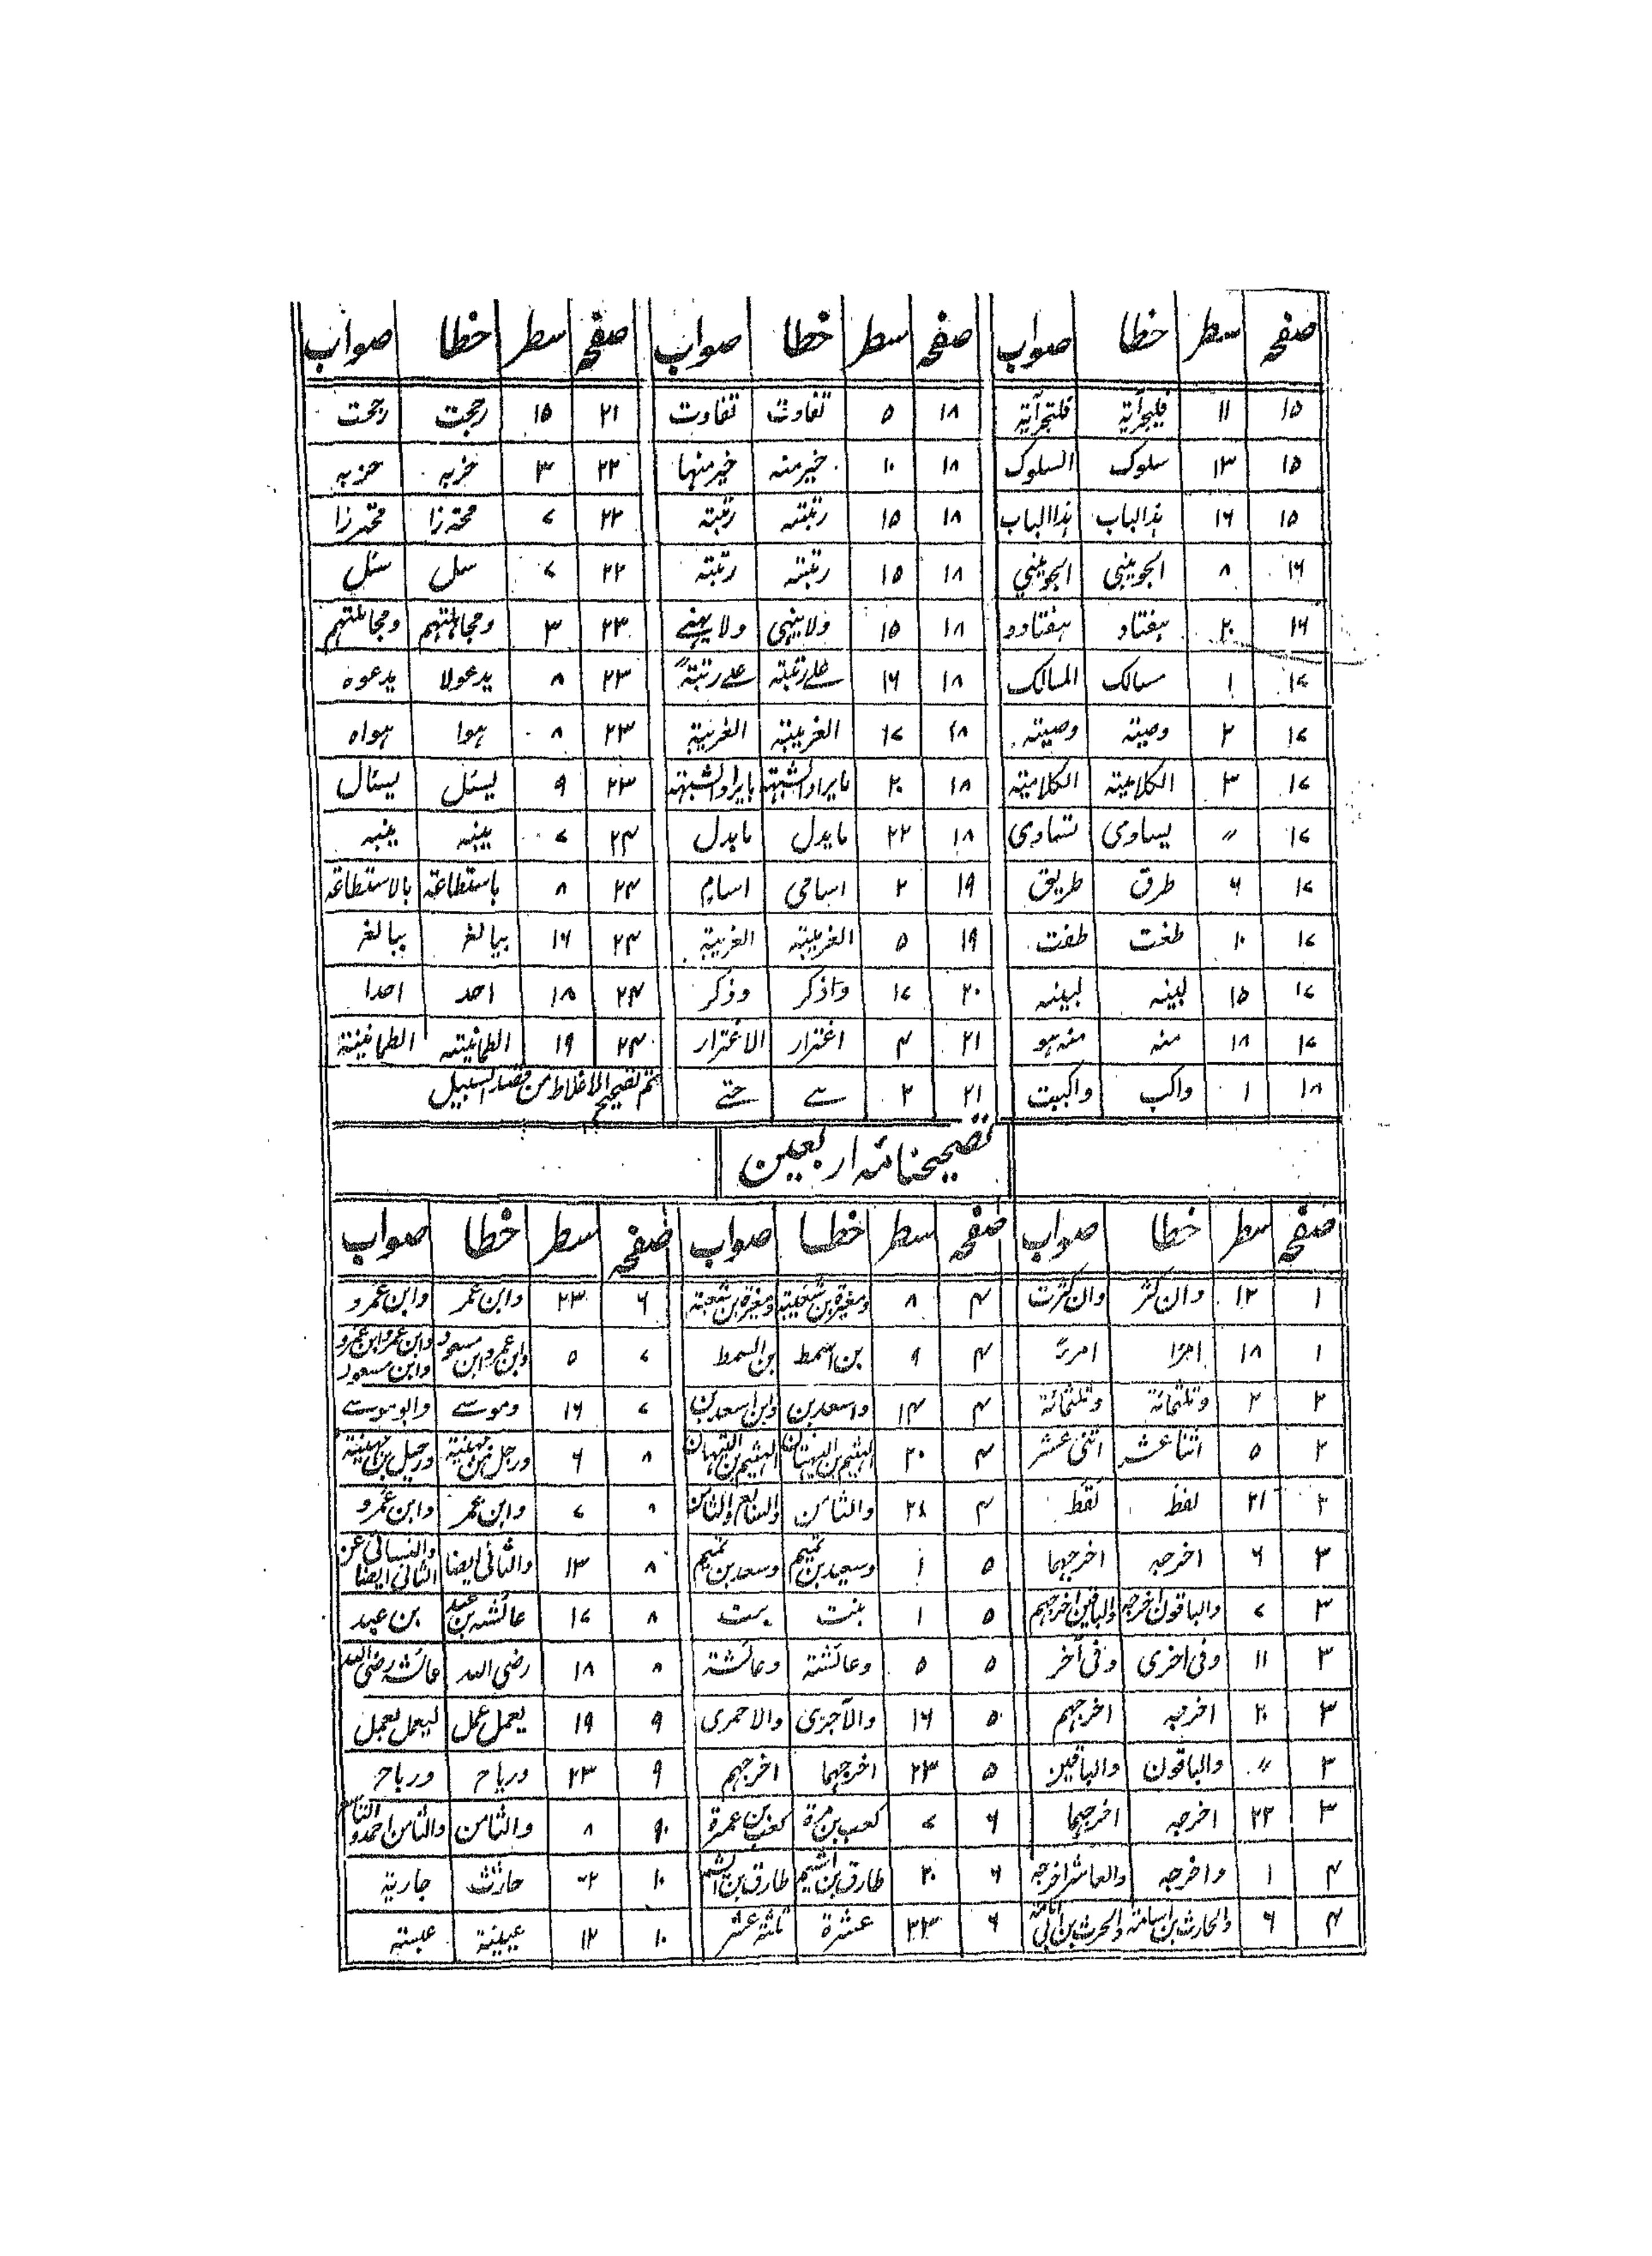 صفحہ سطر خطا صواب صفحہ سطر خطا صواب صفحہ سطر خطا صواب
۱۵ ۱۱ فلیجرآیة فلتجرآیة ۱۸ ۵ تفاوث تفاوت ۲۱ ۱۵ رجحبت رجحت
۱۵ ۱۳ سلوک السلوک ۱۸ ۱۰ خیرمنہ خیرمنہا ۲۲ ۳ خزبہ حزبہ
۱۵ ۱۶ ہذالباب ہذاالباب ۱۸ ۱۵ رتبتہ رتبة ۲۲ ۷ محترزا محترزا
۱۶ ۸ الجوینبی الجوینی ۱۸ ۱۵ رتبتہ رتبة ۲۲ ۷ سل سئل
۱۶ ۲۰ ہفتاد ہفتادو ۱۸ ۱۵ ولاینہی ولاینہے ۲۳ ۳
۱۷ ۱ مسالک المسالک ۱۸ ۱۶ علے رتبتہ علے رتبة ۲۳ ۸ یدعولا یدعوہ
۱۷ ۲ وصیتہ وصیتہ ۱۸ ۱۷ الغربیتہ الغریبة ۲۳ ۸ ہوا ہواہ
۱۷ ۳ الکلامیتہ الکلامیة ۱۸ ۲۰ بایرادالشبہتہ بایرادالشبہة ۲۳ ۹ لیسئل لیسئال
۱۷ // یساوی تساوی ۱۸ ۲۲ مایدل مایدل ۲۴ ۷ یبینہ
۱۷ ۶ طرق طریق ۱۹ ۲ اسامی اسامٍ ۲۴ ۸ باستطاعة بالاستطاعة
۱۷ ۱۰ طغت طفت ۱۹ ۵ الغربیتہ الغریبة ۲۴ ۱۶ بیالغ یبالغ
۱۷ ۱۵ لبینہ لبینہ ۲۰ ۱۷ واذکر وذکر ۲۴ ۱۸ احد احدا
۱۷ ۱۸ منہ منہ ہو ۲۱ ۴ اغترار الاغترار ۲۴ ۱۹ الطمانیتہ الطمانینة
۱۸ ۱ واکب واکبیت ۲۱ ۲ سے حتے تم تصحیح الاغلاط من قصد السبیل
تصحیحنامہ اربعین
صفحہ سطر خطا صواب صفحہ سطر خطا صواب صفحہ سطر خطا صواب
۱ ۱۲ وان کثر وان کثرت ۴ ۸ ومغیرة بن شعیبة ومغیرة بن شعبة ۶ ۲۳ وابن عمر وابن عمرو
۱ ۱۸ امرٔا امرئ ۴ ۹ بن اسمط بن السمط ۷ ۵ وابن عمرو ابن مسعود وابن عمرو ابن عمرو وابن مسعود
۲ ۲ وثلثمائة وثلثمائة ۴ ۱۴ واسعدبن وابن اسعدبن ۷ ۱۶ وموسے وابوموسے
۲ ۵ اثنا عشر اثنی عشر ۴ ۲۰ الہثیم بن الہیتان الہثیم بن التیہان ۸ ۶ ورجل من جہنیة ورجل بن جہینة
۲ ۲۱ لفظ لقط ۴ ۲۱ والثامن والسابع والثامن ۸ ۷ وابن عمر وابن عمرو
۳ ۶ اخرجہ اخرجہما ۵ ۱ وسعیدبن تمیم وسعدبن تمیم ۸ ۱۳ والثانی ایضا والنسائی عن الثانی ایضا
۳ ۷ والباقون اخرجہ والباقین اخرجہم ۵ ۱ بنت ۸ ۱۷ عائشہ بن عبد بن عبد
۳ ۱۱ وفی اخری وفی آخر ۵ ۵ وعائشتہ وعائشة ۸ ۱۸ رضی اللہ عائشہ رضی اللہ
۳ ۲۰ اخرجہ اخرجہم ۵ ۱۶ والآجزی والاحمری ۹ ۱۹ یعمل عمل لیعمل بعمل
۳ // والباقون والباقین ۵ ۲۳ اخرجہما اخرجہم ۹ ۲۳ ورباح ورباح
۳ ۲۲ اخرجہ اخرجہما ۶ ۷ کعب بن مرة کعب بن عمرة ۹ ۸ والثامن والثامن احمد والتاسع
۴ ۱ واخرجہ والعاشر اخرجہ ۶ ۲۰ طارق بن اشیم طارق بن اشیم ۱۰ ۲ حارث جاریة
۴ ۶ والحارث بن اسامة والحرث بن ابی اسامة ۶ ۲۳ عشرة ثلثة عشر ۱۰ ۱۲ عیینة عبستہ